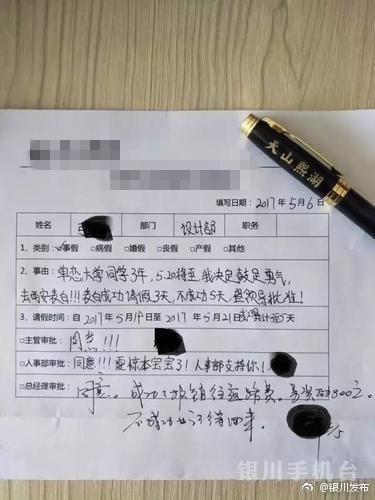 天山熙湖
填写日期：2017年5月6日
姓名 部门 设计部 职务
1、类别：☑事假 □病假 □婚假 □丧假 □产假 □其他
2、事由：单恋大学同学3年，5.20将至 我决定鼓足勇气，
去西安表白!!!表白成功请假3天，不成功5天，望领导批准！
3、请假时间：自2017年5月19日至2017年5月21日 计 5天
□主管审批：同意!!!
□人事部审批：同意!!!震惊本宝宝了！人事部支持你！
□总经理审批：同意。成功了报销往返路费。另资助800元。
不成功也记得回来。
银川手机台
@银川发布